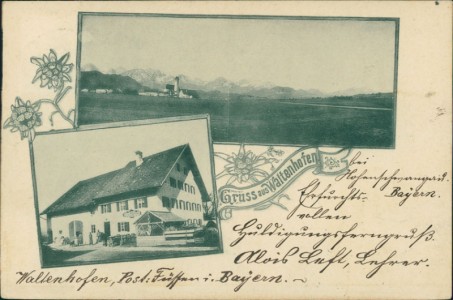 Gruss aus Waltenhofen
bei
Hohenschwangau.
Bayern.
Erfurchts-
vollen
Huldigungsferngruß.
Alois Left, Lehrer.
Waltenhofen, Post: Füssen i. Bayern.